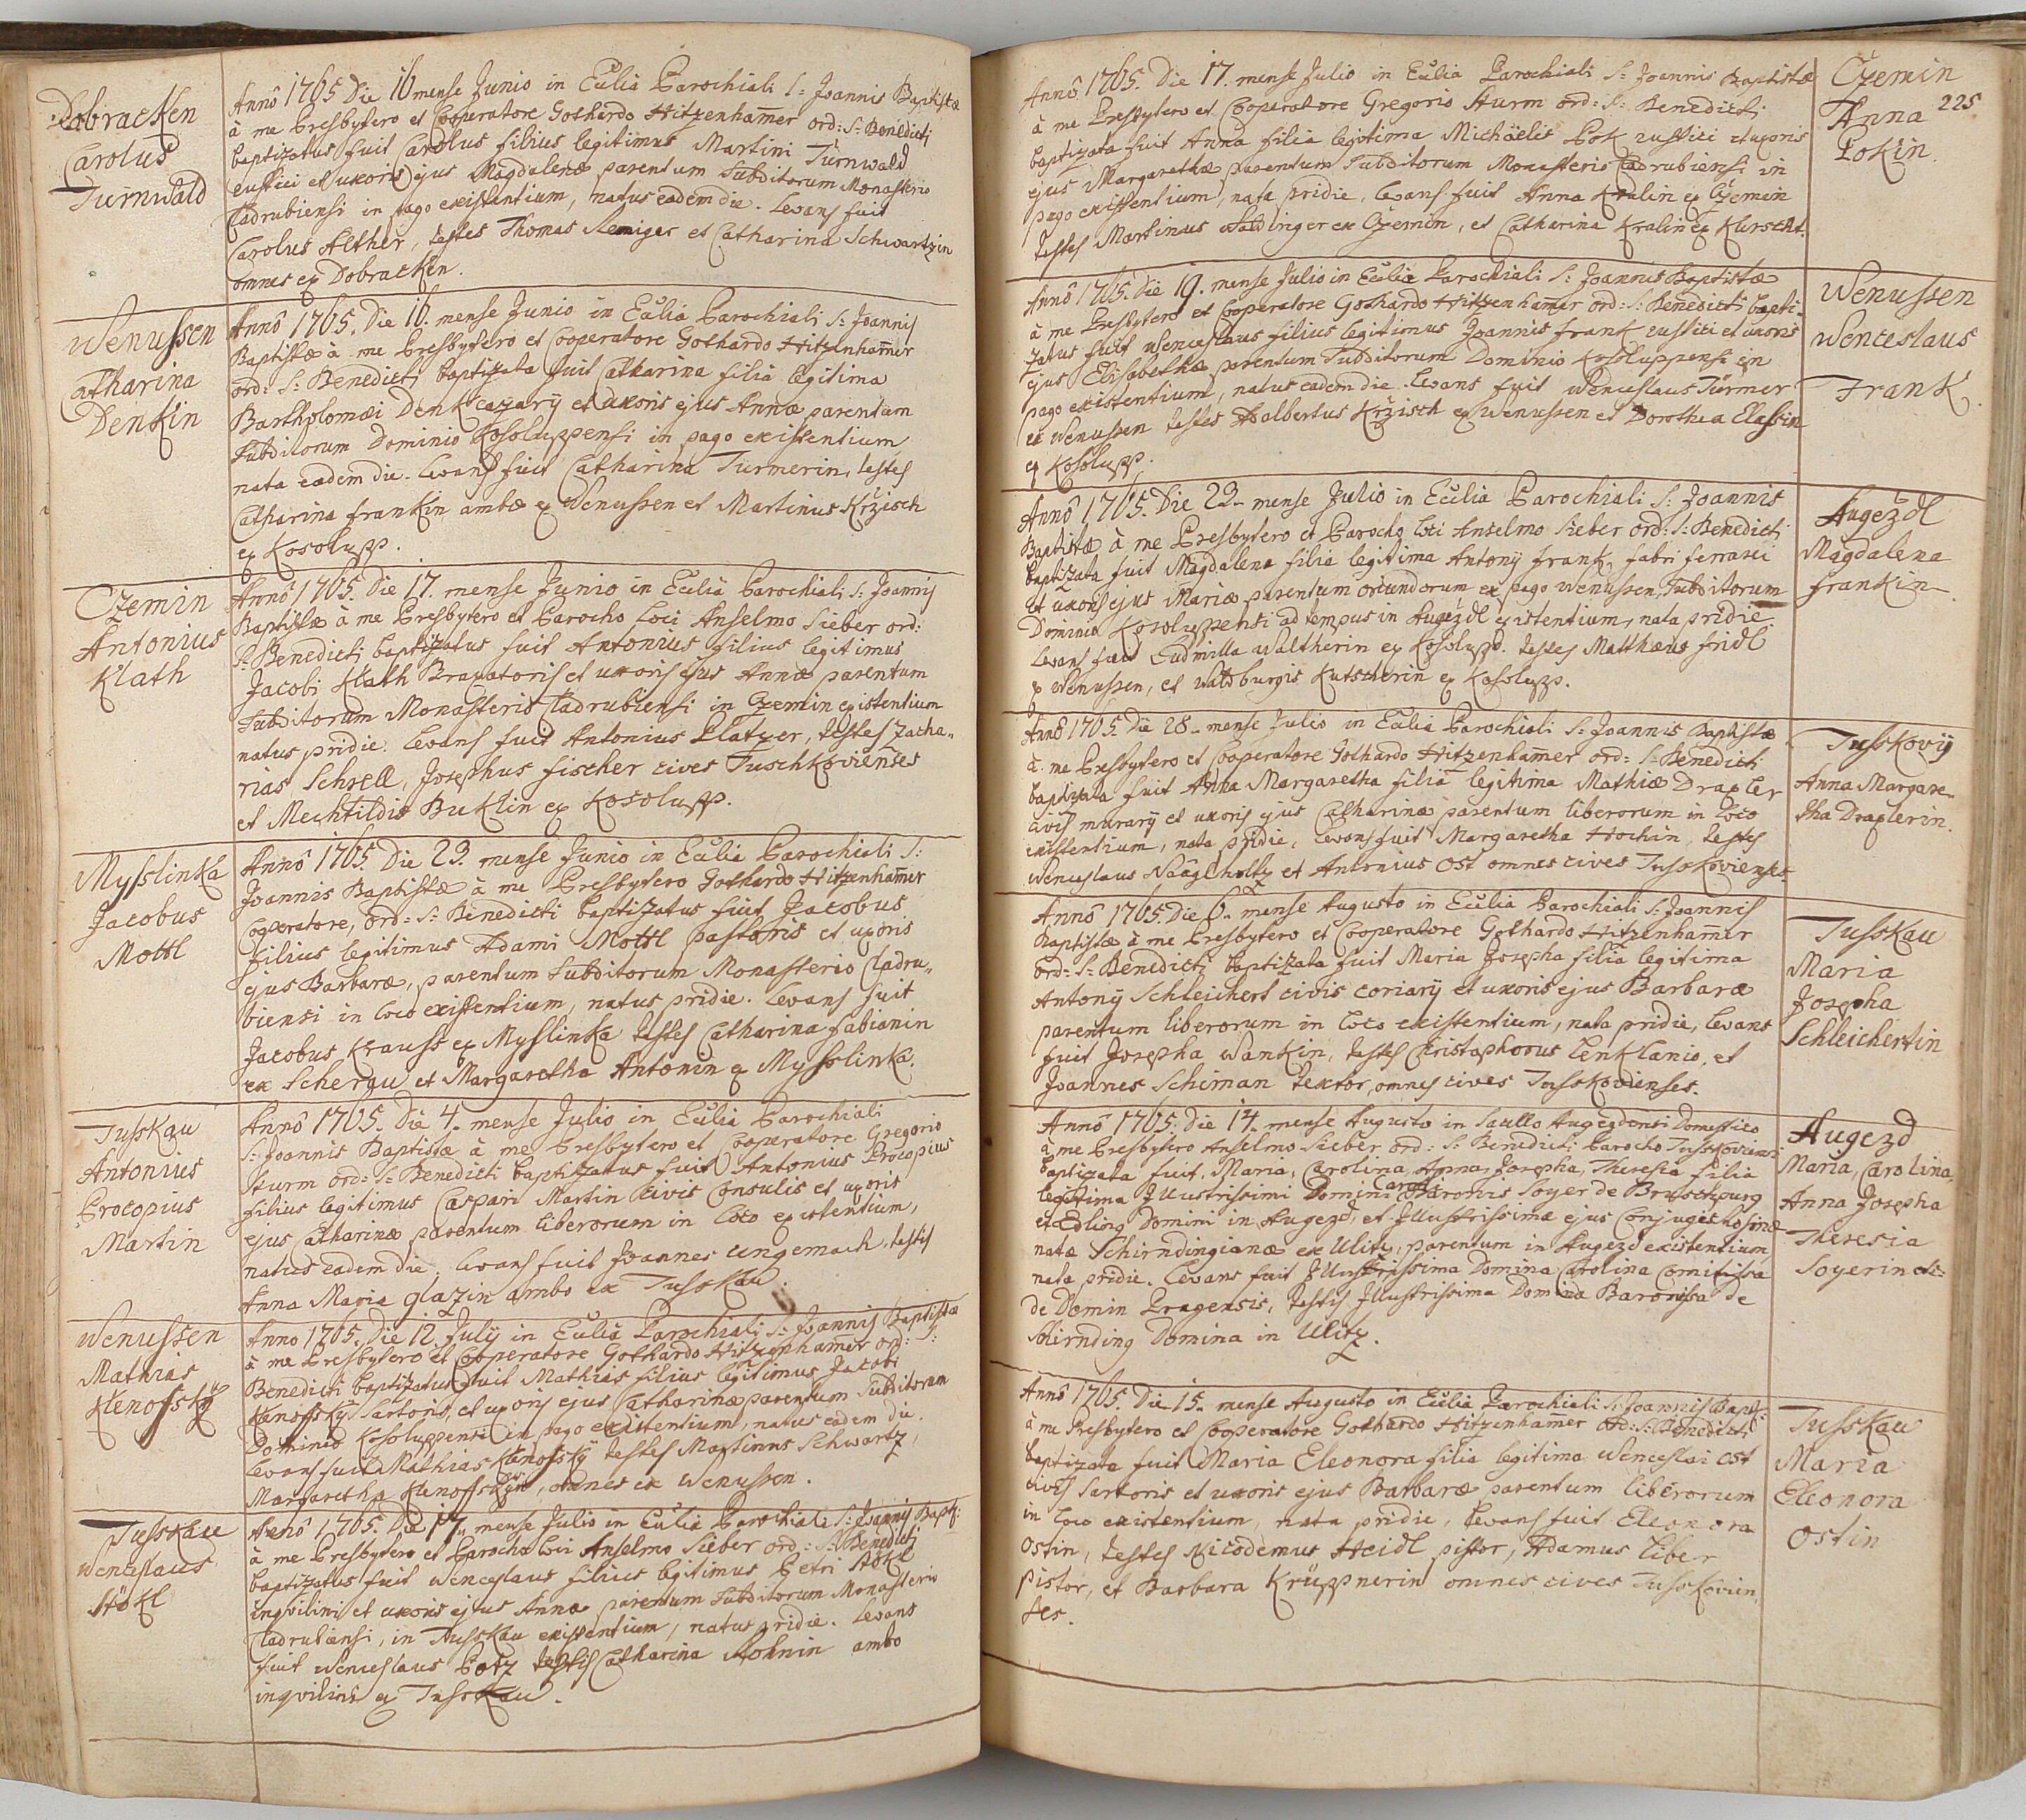 Dobracken
Carolus
Turnwald
Annô 1765 Die 16 mense Junio in Eccliâ Parochiali S: Joannis Baptistæ
à me Presbytero et Cooperatore Gothardo Hitzenham̄er ord: S: Benedicti
baptizatus fuit Carolus filius legitimus Martini Turnwald
rustici et uxoris ejus Magdalenæ parentum Subditorum Monasterio
Cladrubiensi in pago existentium, natus eadem die. Levans fuit
Carolus Alther, testes Thomas Remiger et Catharina Schwartzin
omnes ex Dobracken.
Wenussen
Catharina
Denkin
Annô 1765. Die 16. mense Junio in Eccliâ Parochiali S: Joannis
Baptistæ à me Presbytero et Cooperatore Gothardo Hitzenham̄er
ord: S: Benedicti baptizata fuit Catharina filia legitima
Bartholomæi Denk cazarij et uxoris ejus Annæ parentum
Subditorum Dominio Kosoluppensi in pago existentium
nata eadem die. Levans fuit Catharina Turmerin, testes
Catharina Frankin ambæ ex Wenussen et Martinus Kržisch
ex Kosolupp.
Czemin
Antonius
Klath
Annô 1765. Die 17. mense Junio in Eccliâ Parochiali S: Joannis
Baptistæ à me Presbytero et Parocho Loci Anselmo Sieber ord:
S: Benedicti baptizatus fuit Antonius filius legitimus
Jacobi Klath Braxatoris et uxoris ejus Annæ parentum
Subditorum Monasterio Cladrubiensi in Czemin existentium
natus pridie. Levans fuit Antonius Platzer, testes Zacha„
rias Schrell, Josephus Fischer cives Tuschkovienses
et Mechtildis Buklin ex Kosolupp.
Mysslinka
Jacobus
Mottl
Annô 1765. Die 23. mense Junio in Eccliâ Parochiali S:
Joannis Baptistæ à me Presbytero Gothardo Hitzenham̄er
Cooperatore, ord: S: Benedicti baptizatus fuit Jacobus
filius legitimus Adami Mottl pastoris et uxoris
ejus Barbaræ, parentum Subditorum Monasterio Cladru„
biensi in loco existentium, natus pridie. Levans fuit
Jacobus Krauss ex Mysslinka testes Catharina Fabianin
ex Schergu et Margaretha Antonin ex Mysslinka.
Tusskau
Antonius
Procopius
Martin
Annô 1765. Die 4. mense Julio in Eccliâ Parochiali
S: Joannis Baptistæ à me Presbytero et Cooperatore Gregorio
Sturm ord: S: Benedicti baptizatus fuit Antonius Procopius
filius legitimus Caspari Martin Civis Consulis et uxoris
ejus Catharinæ parentum liberorum in loco existentium,
natus eadem die, Levans fuit Joannes Ungemach, testis
Anna Maria Glazin ambo ex Tusskau.
Wenussen
Mathias
Klenofsky
Anno 1765. Die 12. Julij in Eccliâ Parochiali S: Joannis Baptistæ
à me Presbytero et Cooperatore Gothardo Hitzenham̄er ord: S:
Benedicti baptizatus fuit Mathias filius legitimus Jacobi
Klenoffsky Sartoris, et uxoris ejus Catharinæ parentum Subditorum
Dominio Kosoluppensi in pago existentium, natus eadem die.
Levans fuit Mathias Klenofsky testes Martinus Schwartz,
Margaretha Klenoffskyn, omnes ex Wenussen.
Tusskau
Wenceslaus
Stökl
Annô 1765. Die 17. mense Julio in Eccliâ Parochiali S: Joannis Bapt:
à me Presbytero et Parocho loci Anselmo Sieber ord: S: Benedicti
baptizatus fuit Wenceslaus filius legitimus Petri Stökl
inqvilini et uxoris ejus Annæ parentum Subditorum Monasterio
Cladrubiensi, in Tusskau existentium, natus pridie. Levans
fuit Wenceslaus Potz testis Catharina ambo
inqvilini ex Tusskau.
225
Czemin
Anna
Pokin.
Annô 1765. Die 17. mense Julio in Eccliâ Parochiali S: Joannis Baptistæ
à me Presbytero et Cooperatore Gregorio Sturm ord: S: Benedicti
baptizata fuit Anna filia legitima Michäelis Pok rustici et uxoris
ejus Margarethæ parentum Subditorum Monasterio Cladrubiensi in
pago existentium, nata pridie, Levans fuit Anna Kralin ex Czemin
testes Martinus Waldinger ex Czemin, et Catharina Kralin ex
Wenussen
Wenceslaus
Frank.
Annô 1765. Die 19. mense Julio in Eccliâ Parochiali S: Joannis Baptistæ
à me Presbytero et Cooperatore Gothardo Hitzenhamer ord: S: Benedicti bapti-
zatus fuit Wenceslaus filius legitimus Joannis Frank rustici et uxoris
ejus Elisabethæ parentum Subditorum Dominio Kosoluppensi in
pago existentium, natus eadem die. Levans fuit Wenceslaus Türmer
ex Wenussen testes Adalbertus Kržisch ex Wenussen et Dorothea Elassin
ex Kosolupp.
Augezdl
Magdalena
Frankin
Annô 1765. Die 23. mense Julio in Eccliâ Parochiali S: Joannis
Baptistæ à me Presbytero et Parocho loci Anselmo Sieber ord: S: Benedicti
baptizata fuit Magdalena filia legitima Antonij Frank, fabri ferrarii
et uxoris ejus Mariæ parentum oriundorum ex pago Wenussen, Subditorum
Dominio Kosoluppensi ad tempus in Augezdl existentium, nata pridie.
Levans fuit Ludmilla Waltherin ex Kosolupp. testes Matthæus Fridl
ex Wenussen, et Waldburgis Kutscherin ex Kosolupp.
Tusskovij
Anna Margare„
tha Draxlerin.
Annô 1765. Die 28. mense Julio in Eccliâ Parochiali S: Joannis Baptistæ
à me Presbytero et Cooperatore Gothardo Hitzenham̄er ord: S: Benedicti
baptizata fuit Anna Margaretha filia legitima Mathiæ Draxler
civis murarij et uxoris ejus Catharinæ parentum liberorum in loco
existentium, nata pridie, Levans fuit Margaretha Hochin, testes
Wenceslaus Näglholtz et Antonius Ost omnes cives Tusskovienses.
Tusskau
Maria
Josepha
Schleichertin
Annô 1765. Die 6. mense Augusto in Eccliâ Parochiali S: Joannis
Baptistæ à me Presbytero et Cooperatore Gothardo Hitzenham̄er
ord: S: Benedicti baptizata fuit Maria Josepha filia legitima
Antonij Schleichert civis coriarij et uxoris ejus Barbaræ
parentum liberorum in loco existentium, nata pridie, Levans
fuit Josepha Wankin, testes Christophorus lenk lanio, et
Joannes Schiman textor, omnes cives Tusskovienses.
Augezd
Maria, Carolina,
Anna Josepha
Theresia
Soyerin de:
Annô 1765. Die 14. mense Augusto in Saullo Augezdensi Domestico
à me Presbytero Anselmo Sieber ord: S: Benedicti Parocho Tusskoviensi
baptizata fuit Maria, Carolina, Anna, Josepha, Theresia filia
legitima Illustrissimi Domini Caroli Baronis Soyer de Bruschpurg
et Edling Domini in Augezd, et Illustrissimæ ejus Conjugis
natæ Schirndingianæ ex Ulitz, parentum in Augezd existentium
nata pridie. Levans fuit Illustrissima Domina Carolina Comitissa
de Domin Pragensis, testis Illustrissima Domina Baronissa de
Schirnding Domina in Ulitz.
Tusskau
Maria
Eleonora
Ostin
Annô 1765. Die 15. mense Augusto in Eccliâ Parochiali S: Joannis Bapt:
à me Presbytero et Cooperatore Gothardo Hitzenham̄er ord: S: Benedicti
baptizata fuit Maria Eleonora filia legitima Wenceslai Ost
civis Sartoris et uxoris ejus Barbaræ parentum liberorum
in loco existentium, nata pridie, Levans fuit Eleonora
Ostin, testes Nicodemus Heidl pistor, Adamus Liber
pistor, et Barbara Krüppnerin omnes cives Tusskovien„
ses.